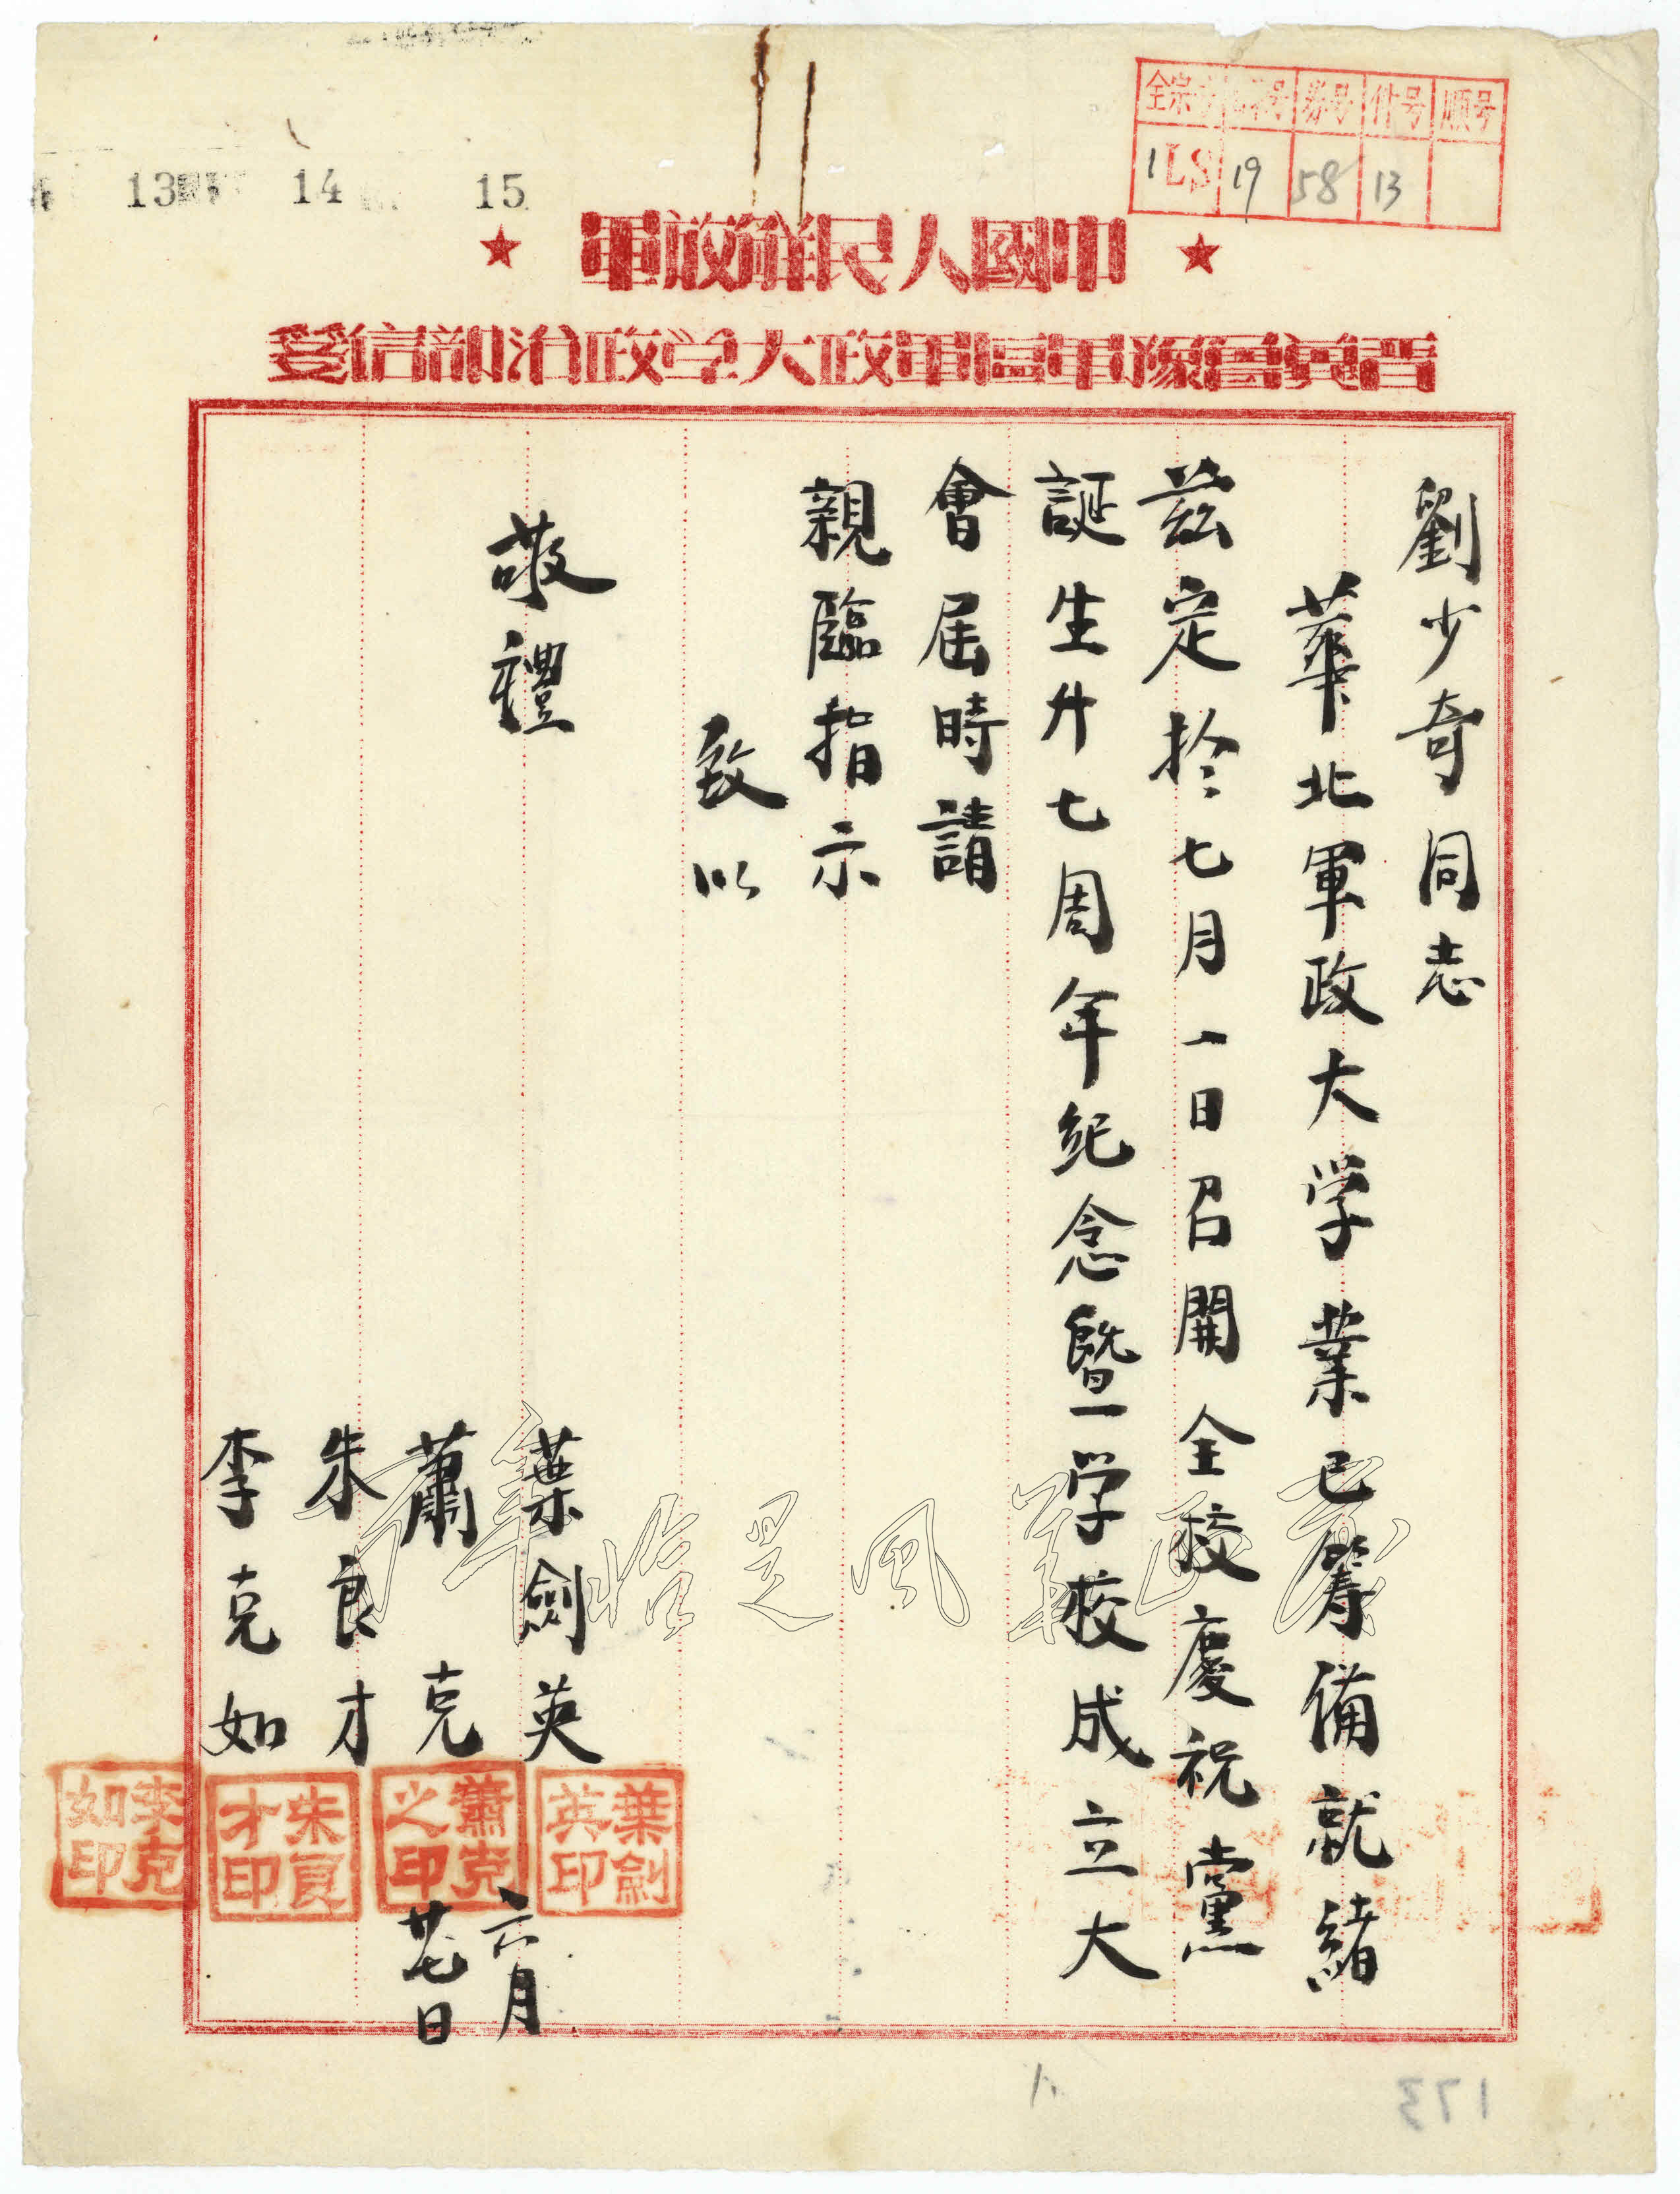 全宗号 号 卷号 件号 順号
1 LS 19 58 13
13 14 15
★ 中國人民解放軍 ★
晋冀魯豫軍區軍政大学政治部信箋
劉少奇同志
華北軍政大学業已籌備就緒
茲定於七月一日召開全校慶祝黨
誕生廾七周年紀念暨学校成立大
會屆時請
親臨指示
致以
敬禮
葉劍英
蕭克
朱良才
李克如
葉劍英印
蕭克之印
朱良才印
李克如印
六月
廿七日
173